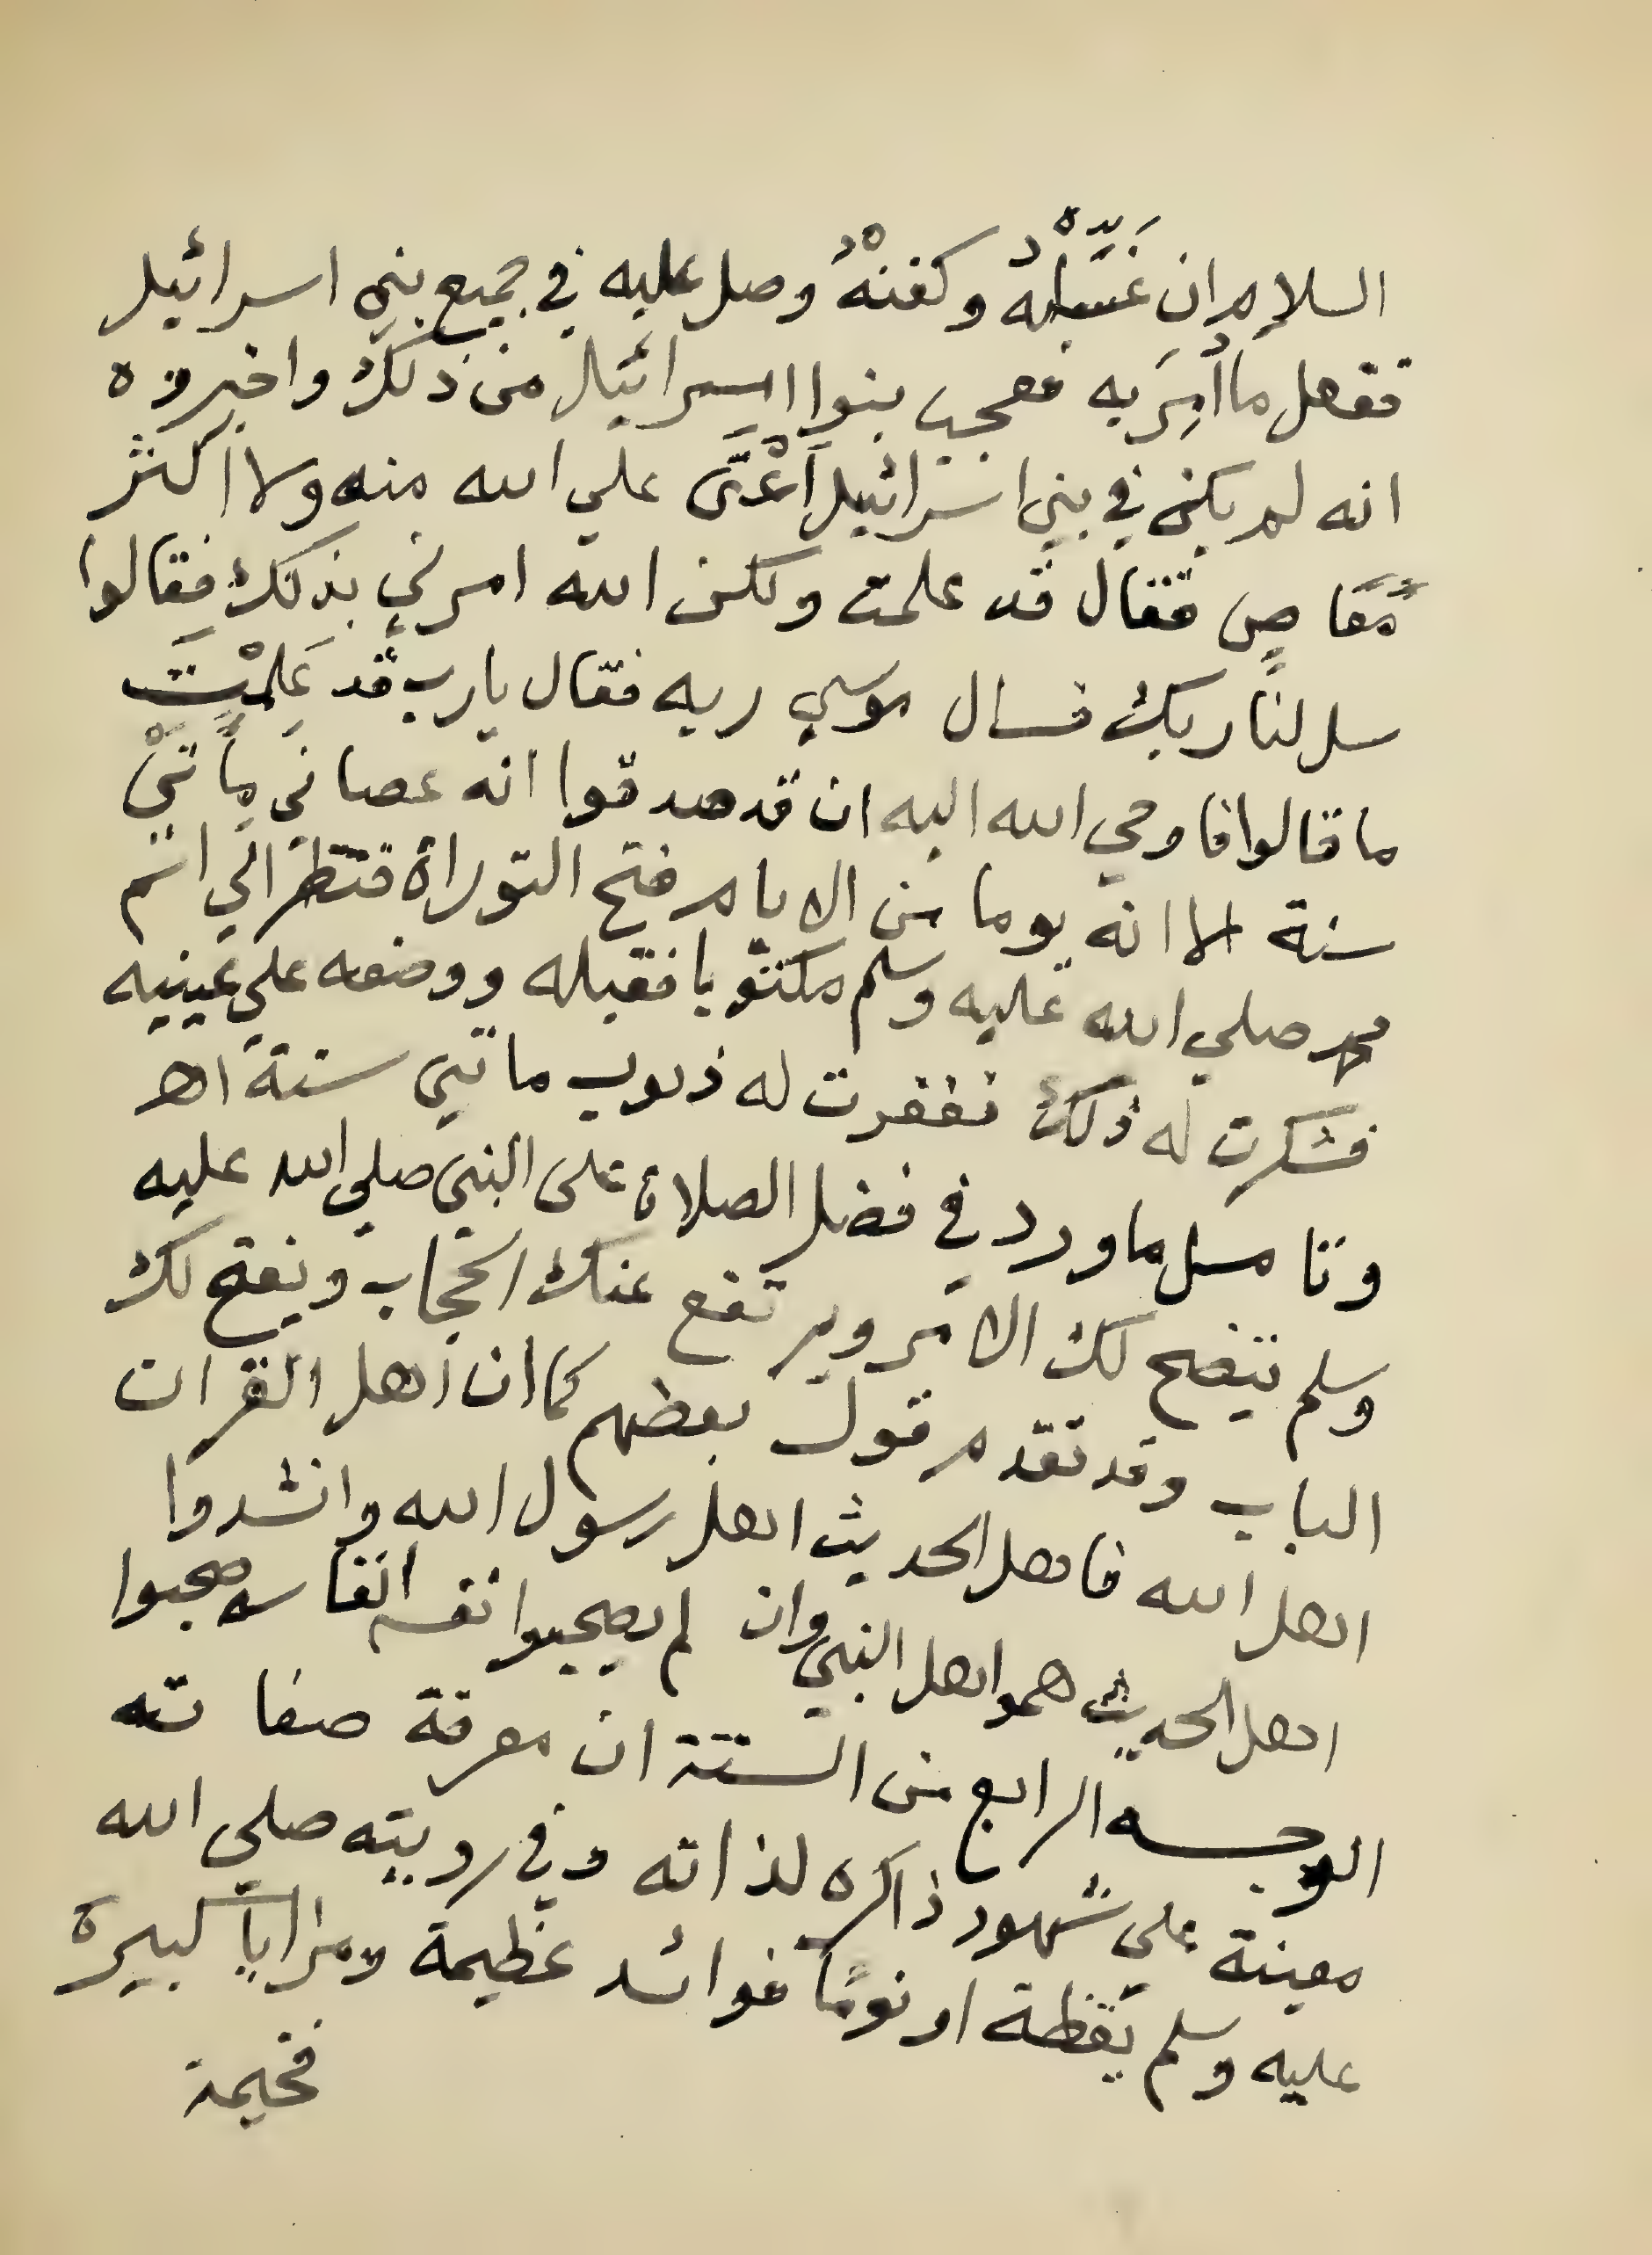 السلام ان غَسِّلهُ وكفنهُ وصل عليه في جميع بني اسرائيل
ففعل ما أُمِرَ به فعجب بنوا اسرائيل من ذلك واخبروه
انه لم يكن في بني اسرائيل أَعْتَى علي الله منه ولا اكثر
مَعَاصٍ فقال قد علمت ولكن الله امرني بذلك فقالوا
سل لنا ربك فسال موسي ربه فقال يارب قد عَلِمْتَ
ما قالوا فاوحي الله اليه ان قد صدقوا انه عصاني ماتي
سنة الا انه يوما من الايام فتح التوراة فنظر الي اسم
محمد صلي الله عليه وسلم مكتوبا فقبله ووضعه علي عينيه
فشكرت له ذلك فغفرت له ذنوب ماتي سنة اهـ
وتامل ما ورد في فضل الصلاة على النبي صلي الله عليه
وسلم يتضح لك الامر ويرتفع عنك الحجاب ويفتح لك
الباب وقد تقدم قول بعضهم كما ان اهل القران
اهل الله فاهل الحديث اهل رسول الله وانشدوا
اهل الحديث همو اهل النبي وان لم يصحبوا نفسه انفاسه صحبوا
الوجه الرابع من الستة ان معرفة صفاته
معينة علي شهود ذاكره لذاته وفي رويته صلي الله
عليه وسلم يقظة او نومًا فوائد عظيمة ومزايا كبيرة
فخيمة